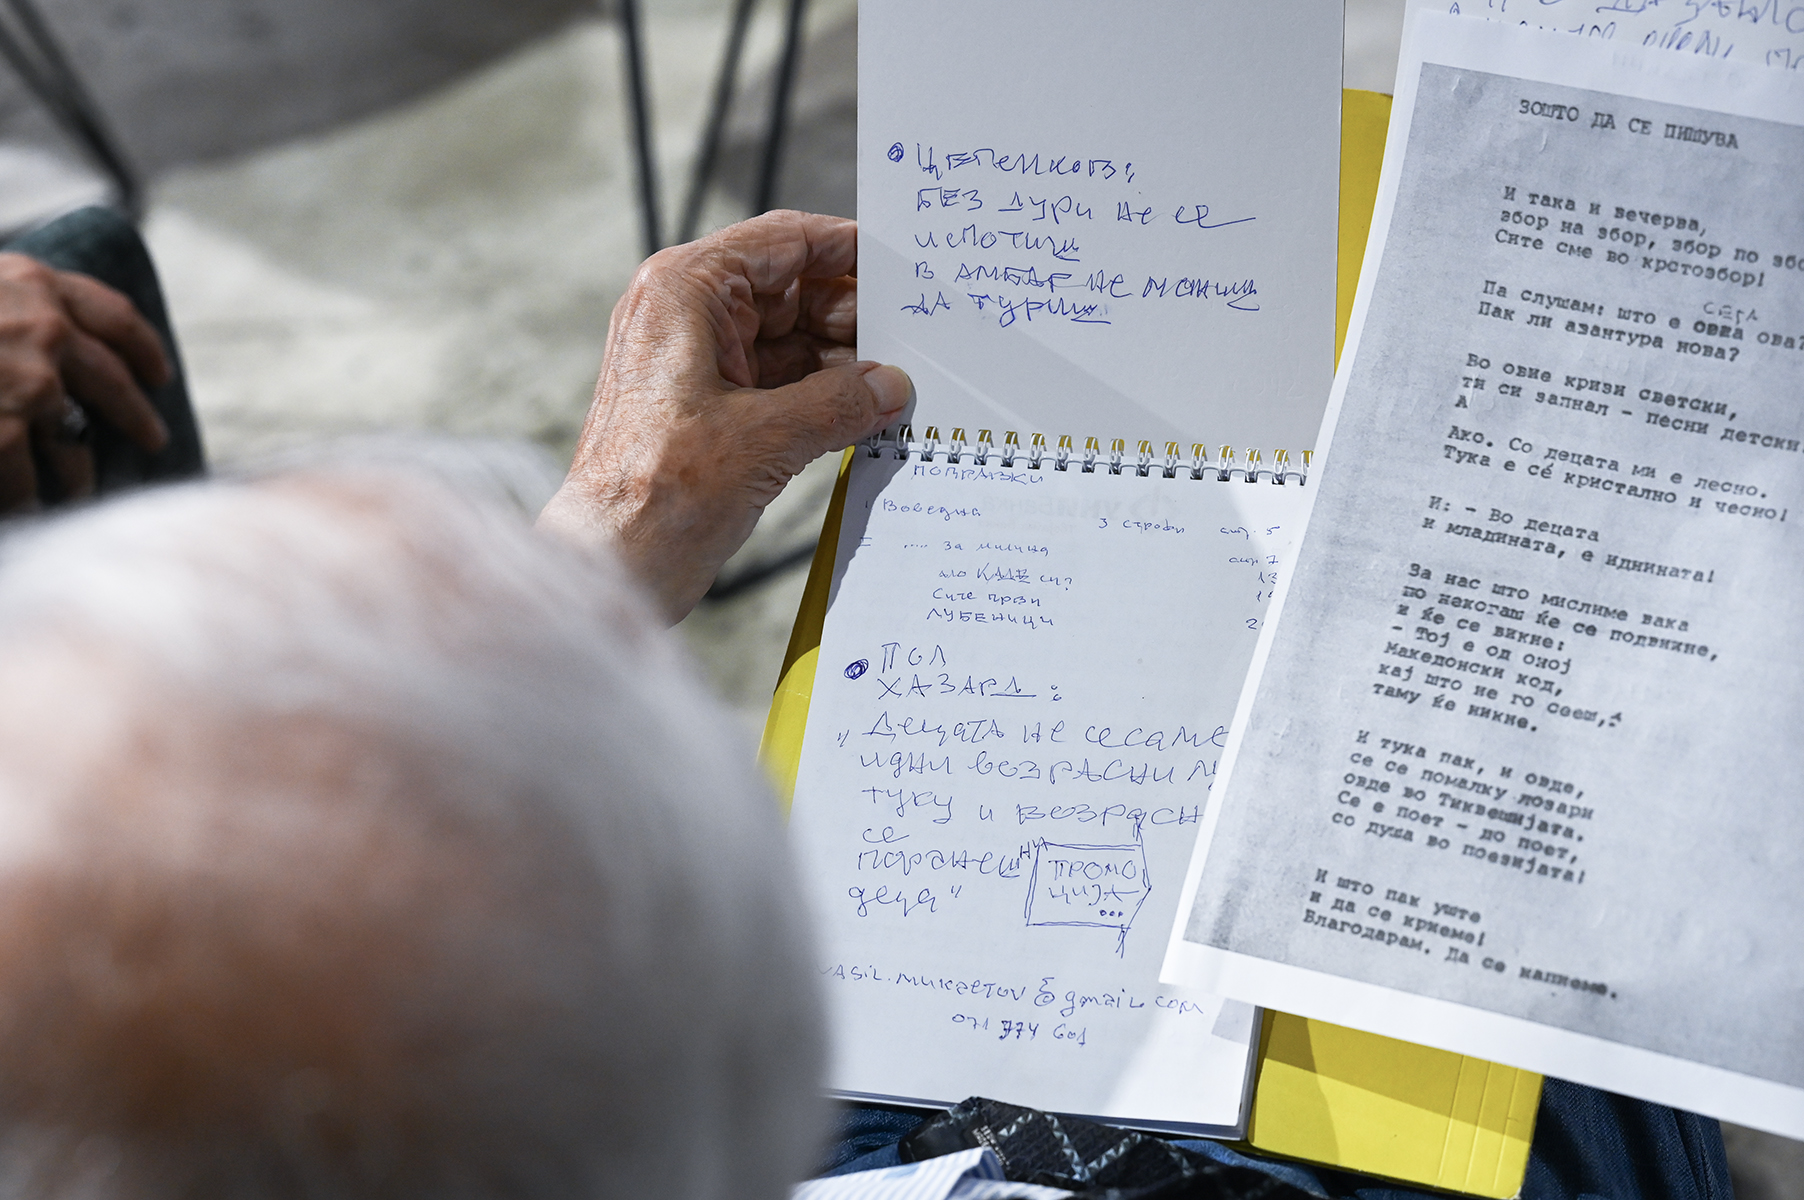 ● ЦЕПЕНКОВ:
БЕЗ ДУРИ НЕ СЕ
ИСПОТИШ
В АМБАР НЕ МОЖИШ
ДА ТУРИШ
ПОВРАЗКИ
I Воведна 3 строфи стр. 5
II ..... За милина стр 7
ало КАДЕ си? 13
Сите први
ЛУБЕНИЦИ
● ПОЛ
ХАЗАРД :
„ Децата не се саме
идни возрасни
туку и возрасн
се
поранешни
деца“
ПРОМО
ЦИЈА
...
VASIL.MUKAETOV @gmail.com
071 774 601
ЗОШТО ДА СЕ ПИШУВА
И така и вечерва,
збор на збор, збор по збо
Сите сме во крстозбор!
СЕГА
Па слушам: што е овва ова?
Пак ли авантура нова?
Во овие кризи светски,
ти си запнал - песни детски.
А
Ако. Со децата ми е лесно.
Тука е сé кристално и чесно!
И: - Во децата
и младината, е иднината!
За нас што мислиме вака
по некогаш ќе се подвикне,
и ќе се викне:
- Тој е од оној
Македонски код,
кај што не го сееш,
таму ќе никне.
И тука пак, и овде,
се се помалку лозари
овде во Тиквешијата.
Се е поет - до поет,
со душа во поезијата!
И што пак уште
и да се кркеме!
Благодарам. Да се напиеме.